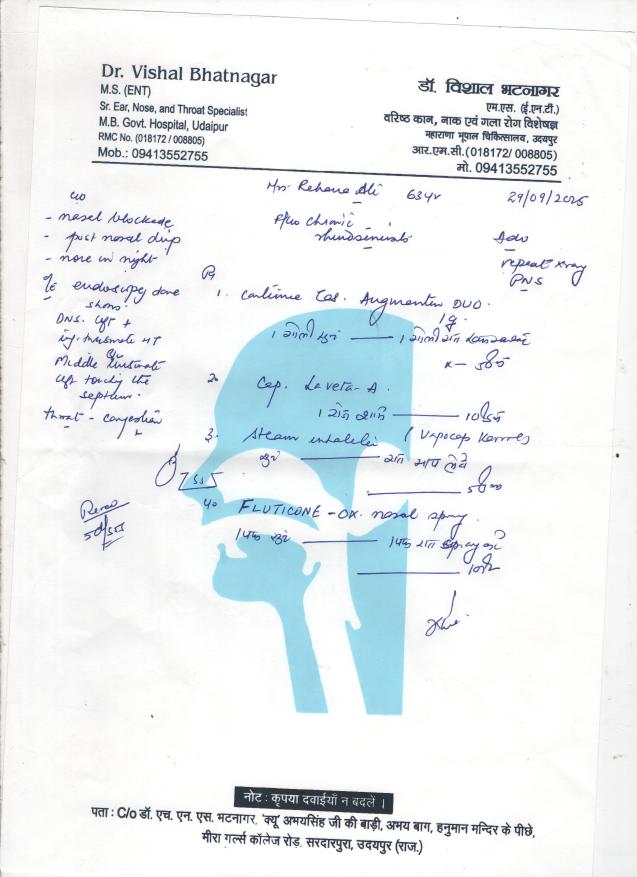 Dr. Vishal Bhatnagar
M.S. (ENT)
Sr. Ear, Nose, and Throat Specialist
M.B. Govt. Hospital, Udaipur
RMC No. (018172 / 008805)
Mob.: 09413552755
डॉ. विशाल भटनागर
एम.एस. (ई.एन.टी.)
वरिष्ठ कान, नाक एवं गला रोग विशेषज्ञ
महाराणा भूपाल चिकित्सालय, उदयपुर
आर.एम.सी. (018172/ 008805)
मो. 09413552755
Mrs. Rehana Ali 63yr 29/09/2025
c/o
- nasal blockade
- post nasal drip
- more in night
O/E endoscopy done
shows.
DNS. left +
inf. turbinate HT
Middle turbinate
left touching the
septum.
throat - congestion
Chronic
rhinosinusitis
Adv
repeat xray
PNS
Rx
1. Continue Tab. Augmentin DUO.
1 गोली सुबह 1 गोली रात
2. Cap. Laveta-A.
10 दिन
3. Steam inhalation (Vapocap
सुबह रात भाप लेवे
4. FLUTICONE-OX nasal spray.
1 पफ सुबह 1 पफ रात
नोट : कृपया दवाईयाँ न बदलें ।
पता : C/o डॉ. एच. एन. एस. भटनागर, 'क्यू' अभयसिंह जी की बाड़ी, अभय बाग, हनुमान मन्दिर के पीछे,
मीरा गर्ल्स कॉलेज रोड़, सरदारपुरा, उदयपुर (राज.)